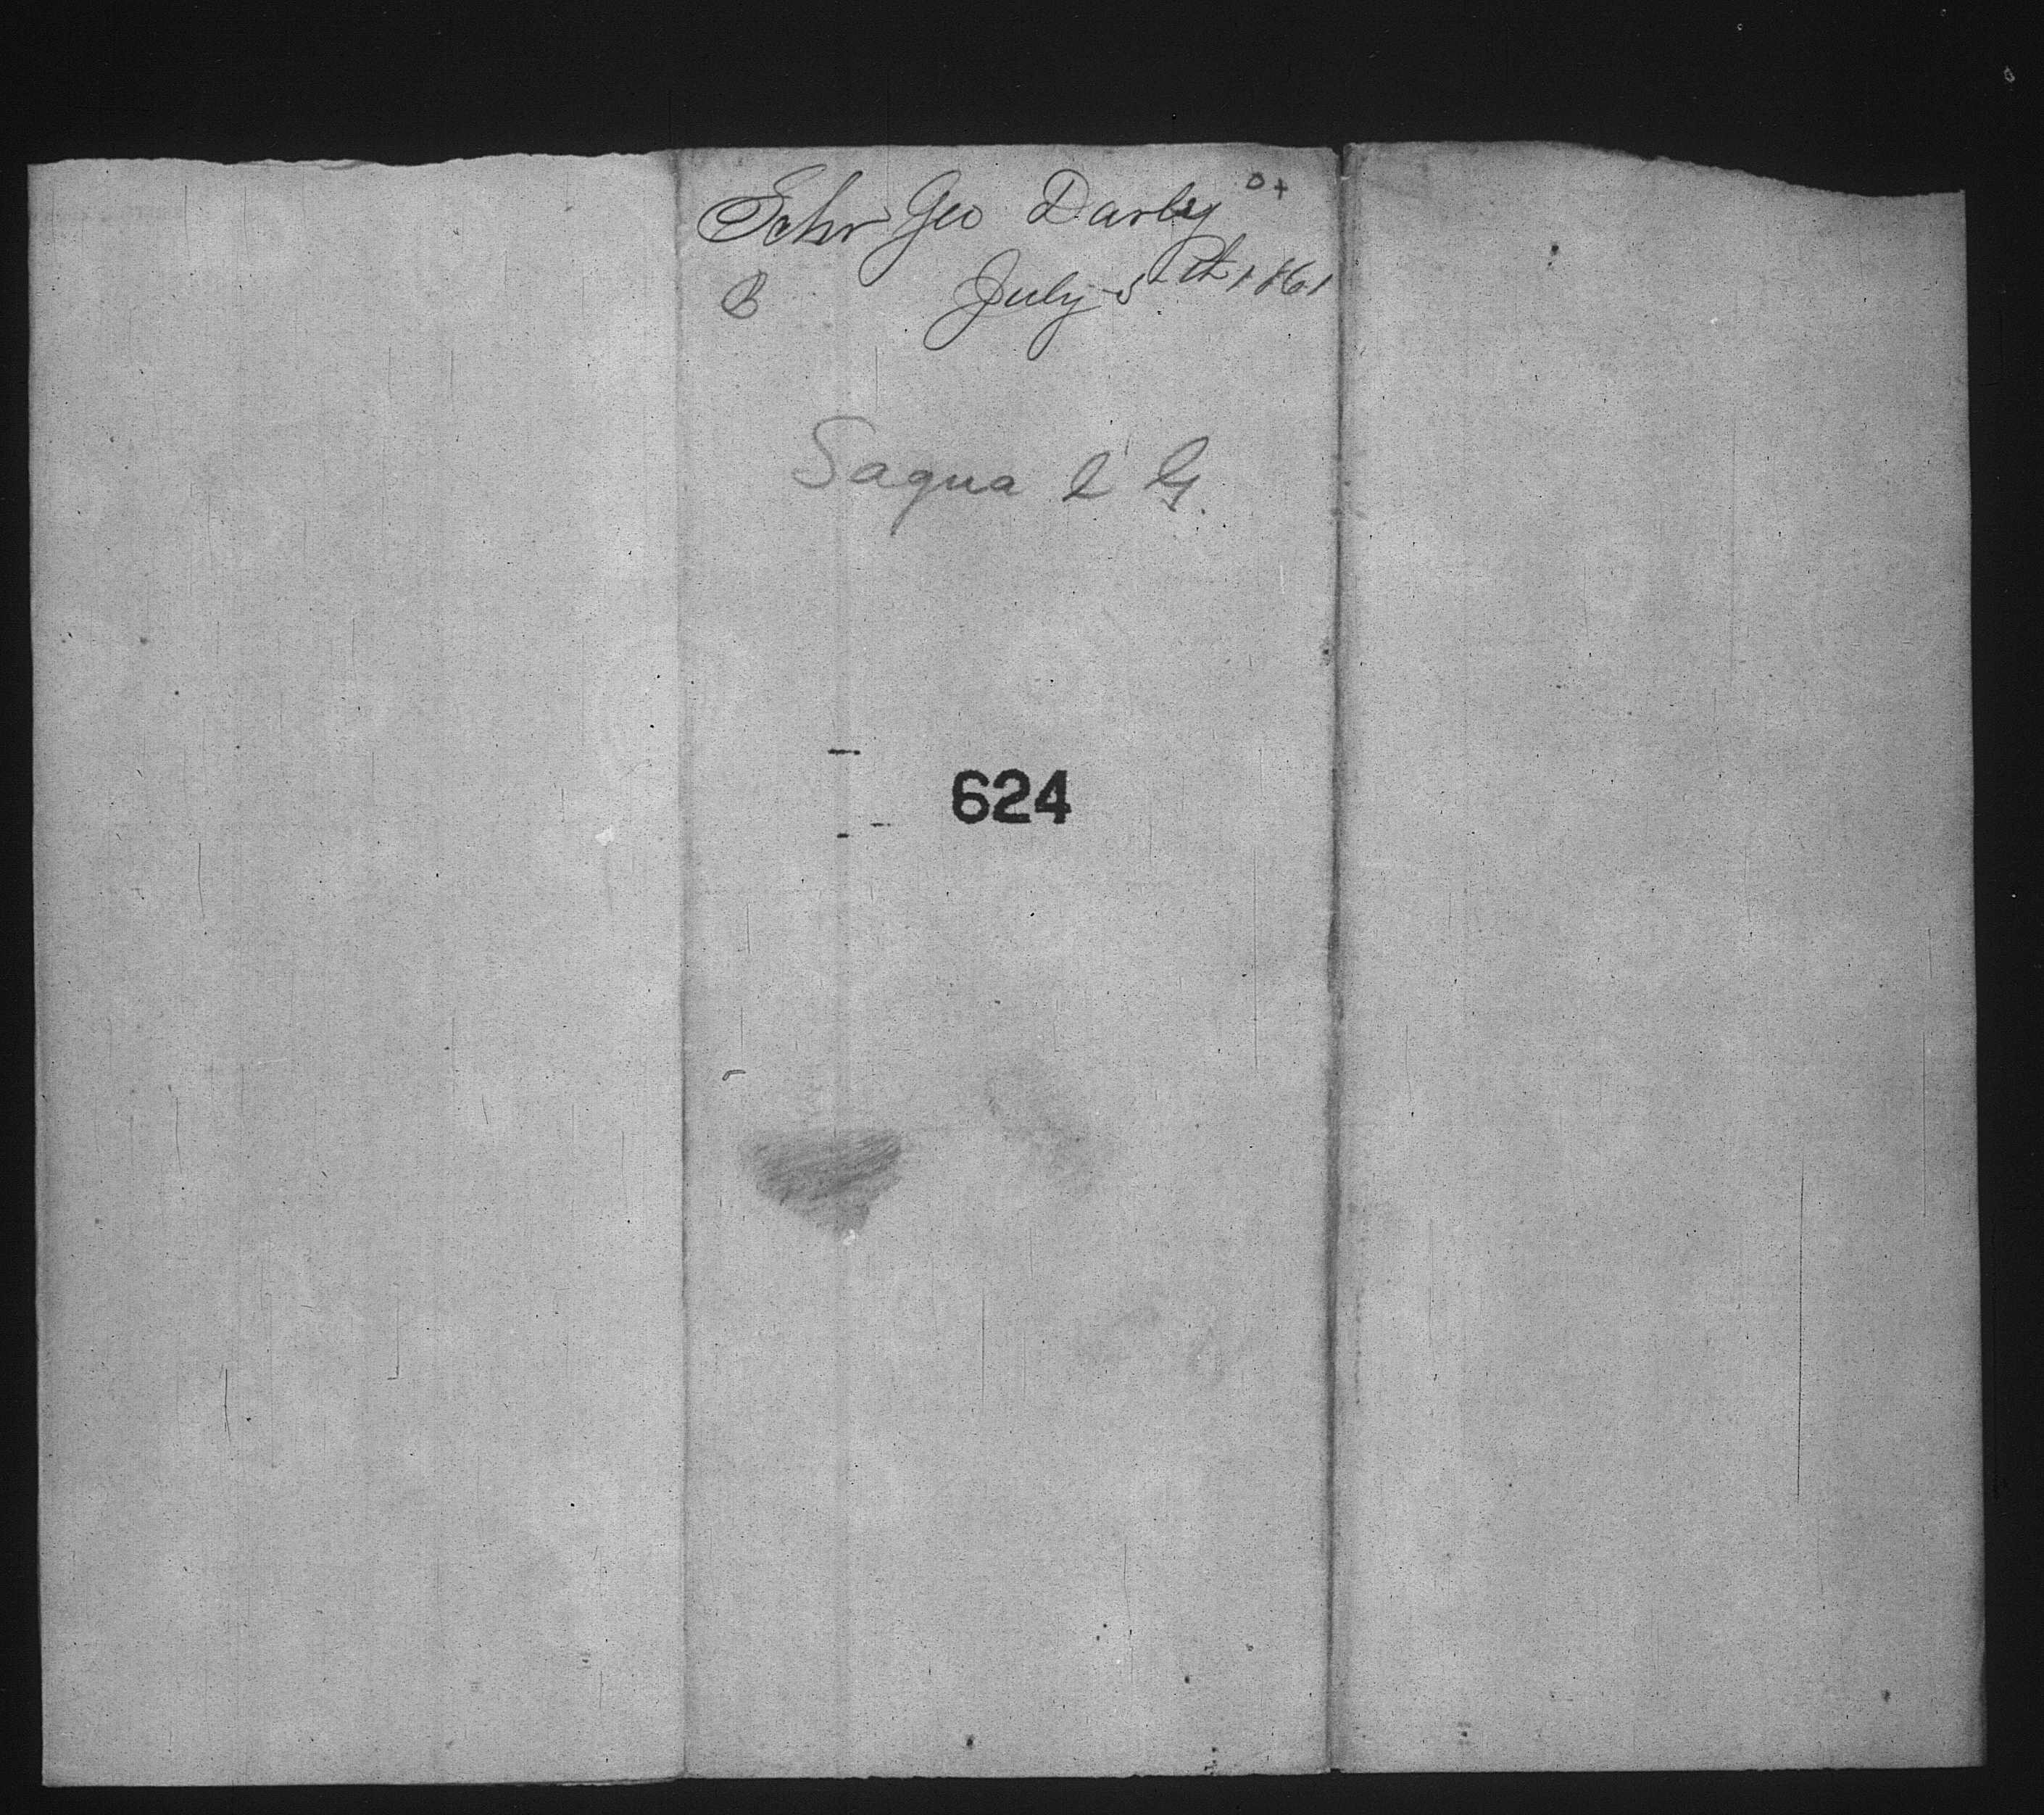 Schr Geo Darby
B July 5th 1861
Sagua l G.
624